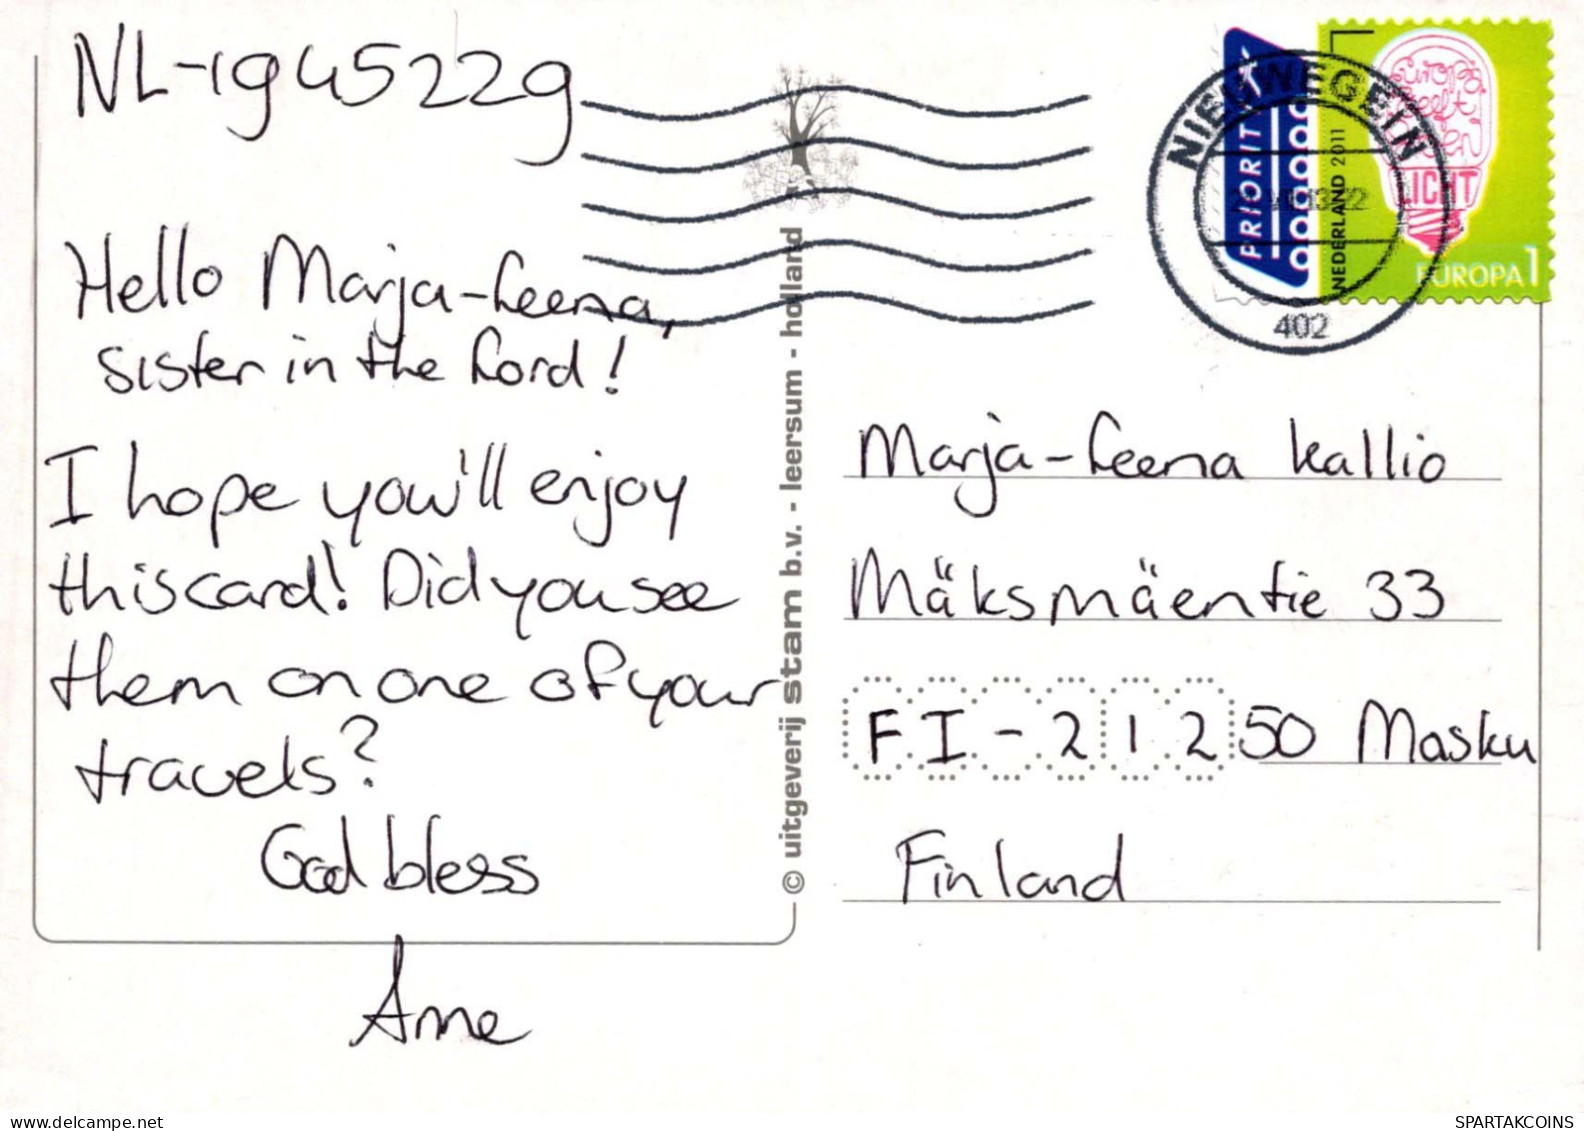 NL-1945229
Hello Marja-Leena,
sister in the Lord!
I hope you'll enjoy
this card! Did you see
them on one of your
travels?
God bless
Anne
© uitgeverij stam b.v. - leersum - holland
PRIORITY
NEDERLAND 2011
Europa
heeft
LICHT
EUROPA 1
NIEUWEGEIN
402
Marja-Leena Kallio
Mäksmäentie 33
FI-21250 Masku
Finland
SPARTAKCOINS